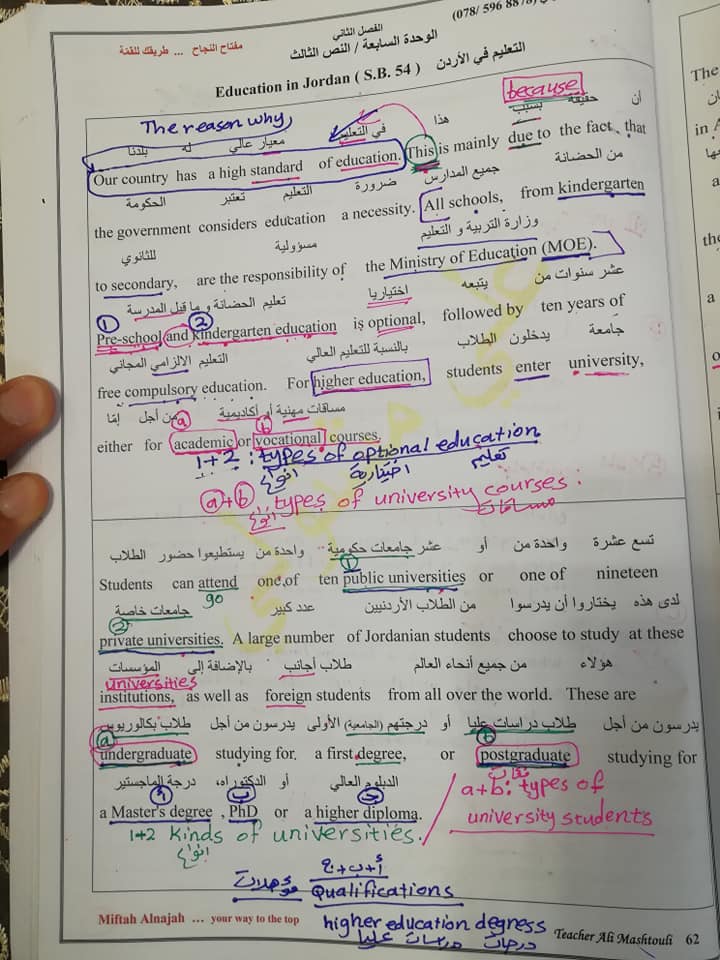 (078/ 596 8878)
الفصل الثاني
مفتاح النجاح ... طريقك للقمة
الوحدة السابعة / النص الثالث
التعليم في الأردن
Education in Jordan ( S.B. 54 )
because
The reason why
أن حقيقة بسبب هذا في التعليم معيار عالي له بلدنا
Our country has a high standard of education. This is mainly due to the fact that
من الحضانة جميع المدارس ضرورة التعليم تعتبر الحكومة
the government considers education a necessity. All schools, from kindergarten
وزارة التربية و التعليم مسؤولية للثانوي
to secondary, are the responsibility of the Ministry of Education (MOE).
عشر سنوات من يتبعه اختياريا تعليم الحضانة و ما قبل المدرسة
1 2
Pre-school and kindergarten education is optional, followed by ten years of
جامعة يدخلون الطلاب بالنسبة للتعليم العالي التعليم الالزامي المجاني
free compulsory education. For higher education, students enter university,
مساقات مهنية أو أكاديمية من أجل إمّا
a b
either for academic or vocational courses.
1+2 : types of optional education
انواع اختيارية تعليم
a+b : types of university courses :
انواع مساقات
تسع عشرة واحدة من أو عشر جامعات حكومية واحدة من يستطيعوا حضور الطلاب
1
Students can attend one of ten public universities or one of nineteen
go
لدى هذه يختاروا أن يدرسوا من الطلاب الأردنيين عدد كبير جامعات خاصة
2
private universities. A large number of Jordanian students choose to study at these
هؤلاء من جميع أنحاء العالم طلاب أجانب بالإضافة إلى المؤسسات
universities
institutions, as well as foreign students from all over the world. These are
يدرسون من أجل طلاب دراسات عليا أو درجتهم (الجامعية) الأولى يدرسون من أجل طلاب بكالوريوس
a b
undergraduate studying for a first degree, or postgraduate studying for
الدبلوم العالي أو الدكتوراه، درجة الماجستير
أ ب ج
a Master's degree , PhD or a higher diploma.
a+b: types of
university students
1+2 kinds of universities.
انواع
أ+ب+ج
مؤهلات Qualifications
higher education degress
درجات دراسات عليا
Miftah Alnajah ... your way to the top
Teacher Ali Mashtouli 62
The
in A
the
a